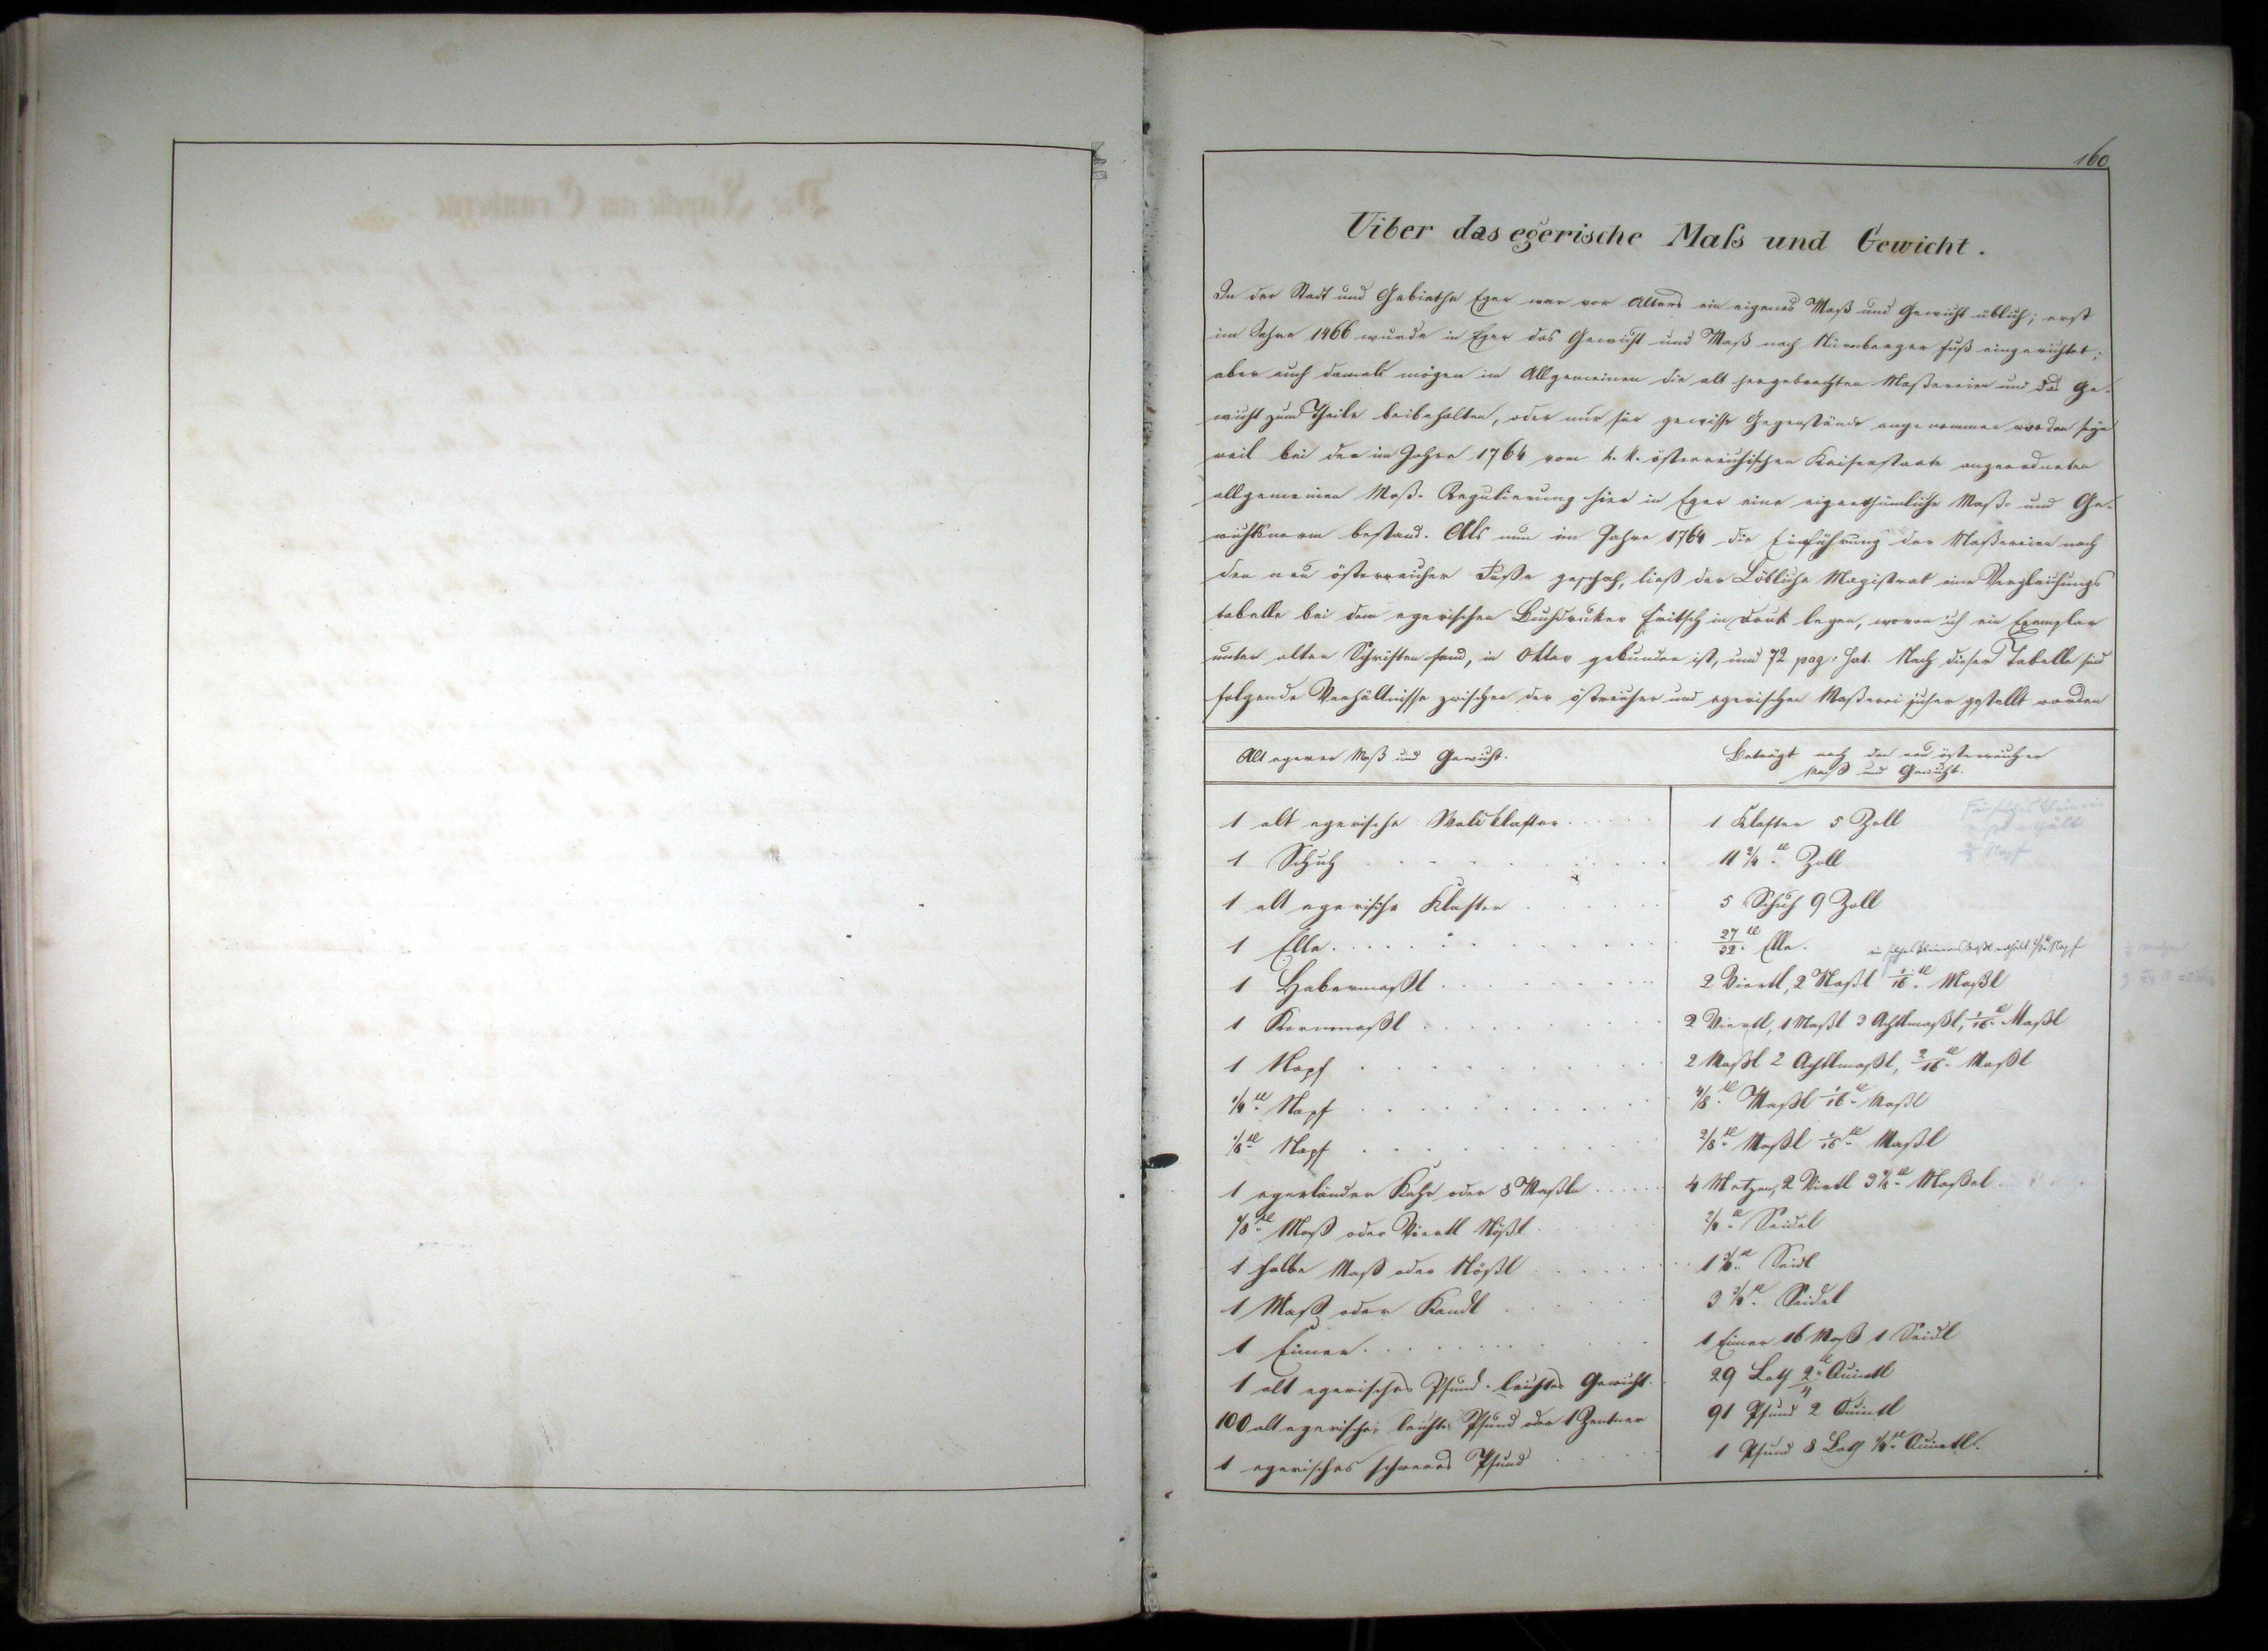 160
Uiber das egerische Maſs und Gewicht.
In der Stadt und Gebiethe Eger war vor Alters ein eigenes Maß und Gewicht üblich; erst
im Jahre 1466 wurde in Eger das Gewicht und Maß nach Nürnberger Fuß eingerichtet;
aber auch damals mögen im Allgemeinen die alt hergebrachten Maßereien und das Ge-
wicht zum Theile beibehalten, oder nur für gewisse Gegenstände angenommen worden seyn
weil bei der im Jahre 1764 vom k. k. österreichischen Kaiserstaate angeordneten
allgemeinen Maß-Regulierung hier in Eger eine eigenthümliche Maß- und Ge-
wichtsnorm bestand. Als nun im Jahre 1764 die Einführung der Maßereien nach
den neu österreicher Fuße geschah, ließ der Löbliche Magistrat eine Vergleichungs
tabelle bei dem egerischen Buchdruker Fritsch in Druk legen, wovon ich ein Exemplar
unter alten Schriften fand, in Oktav gebunden ist, und 72 pag. hat. Nach dieser Tabelle sind
folgende Verhältnisse zwischen der östreicher und egerischen Maßerei sicher gestellt worden
Alt egerer Maß und Gewicht.
Beträgt nach den neu österreicher
Maß und Gewicht.
1 alt egerische Waldklafter . . . . . 1 Klafter 5 Zoll
1 Schuh . . . . . 11 2/4tl Zoll
1 alt egerische Klafter . . . . . 5 Schuh 9 Zoll
1 Elle . . . . . 27/32tl Elle.
1 Habermaßl . . . . . 2 Viertl, 2 Maßl 1/16tl Maßl
1 Kornmaßl . . . . . 2 Viertl, 1 Maßl 3 Achtlmaßl, 1/16tl Maßl
1 Napf . . . . . 2 Maßl 2 Achtlmaßl, 2/16tl Maßl
1/4tl Napf . . . . . 4/8tl Maßl 1/16tl Maßl
1/8tl Napf . . . . . 2/8tl Maßl 1/16tl Maßl
1 egerländer Kahr oder 8 Maßln . . . . . 4 Metzen, 2 Viertl 3 4/8tl Maßel
1/8tl Maß oder Viertl Nößl . . . . . Seidel
1 halbe Maß oder Nößl . . . . . Seidl
1 Maß oder Kandl . . . . . Seidel
1 Eimer . . . . . 1 Eimer 16 Maß 1 Seidl
1 alt egerisches Pfund leichtes Gewicht . 29 Loth 2/4tl Quintl
100 alt egerische leichte Pfund oder 1 Zentner 91 Pfund 2 Quintl
1 egerisches schweres Pfund . . . . . 1 Pfund 8 Loth Quintl.